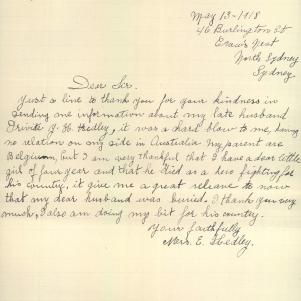 May 13-1918
46 Burlington St
Crow's Nest
North Sydney
Sydney
Dear Sir.
Just a line to thank you for your kindness in
sending me information about my late husband
Private J. H. Hedley, it was a hard blow to me, having
no relation on my side in Australia My parent are
Belgium, but I am very thankful that I have a dear little
girl of four year and that he died as a hero fighting for
his country, it give me a great release to now
that my dear husband was buried. I thank you very
much, I also am doing my bit for his country.
Your faithfully
Mrs. E. Hedley.